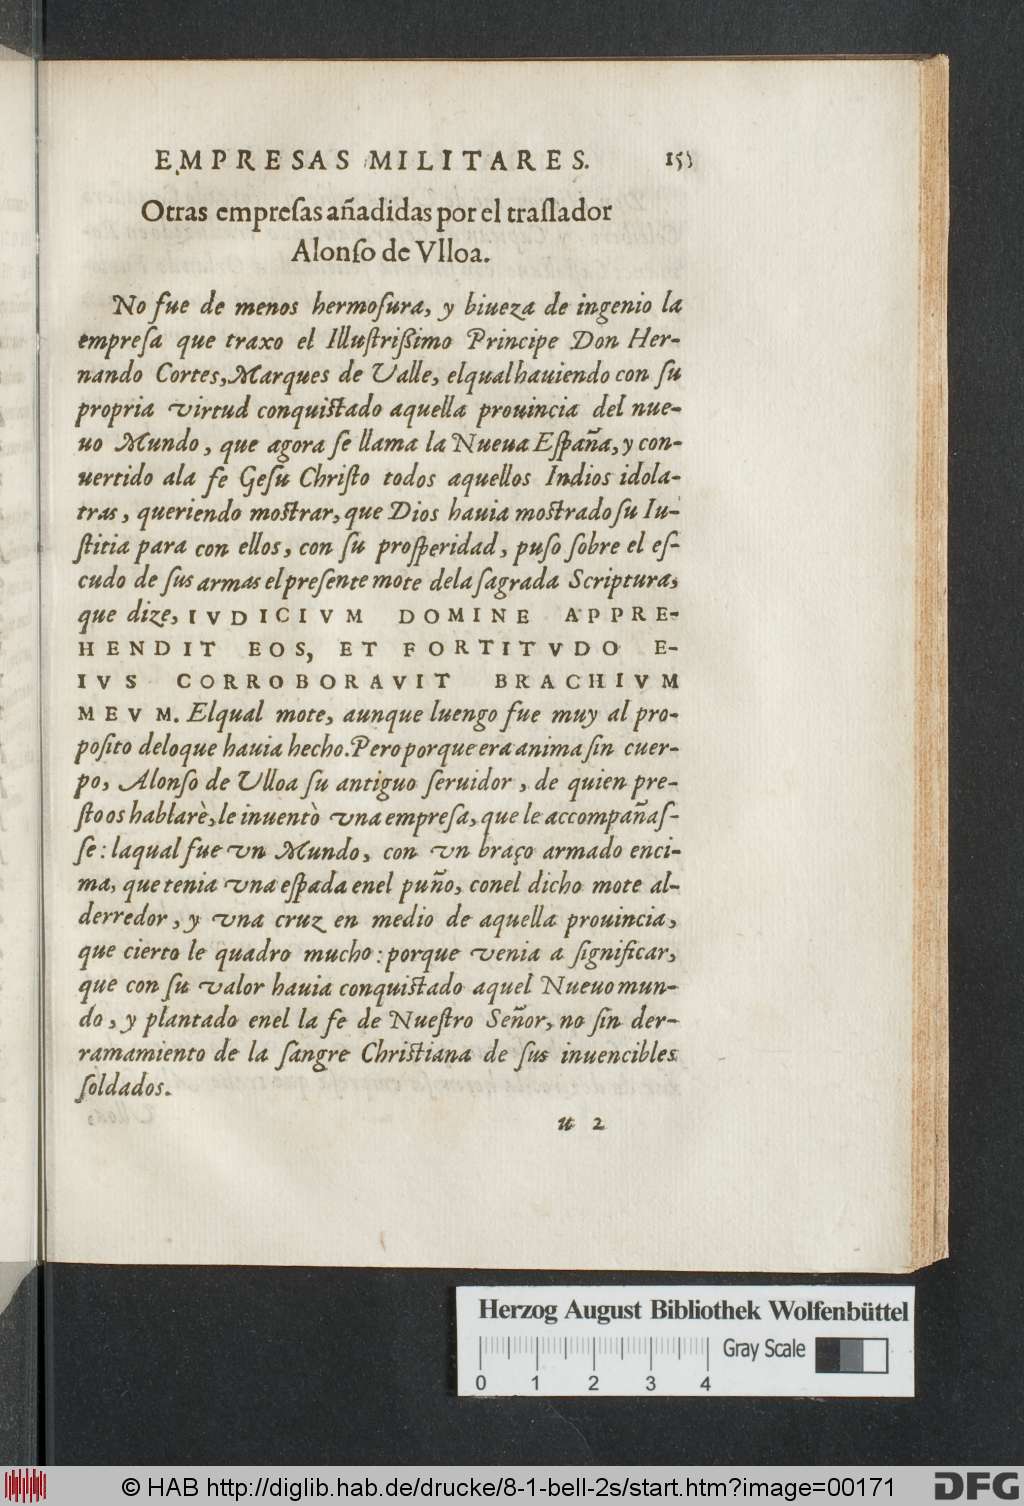 EMPRESAS MILITARES. 155
Otras empreſas añadidas por el traſlador
Alonſo de Vlloa.
No fue de menos hermoſura, y biueza de ingenio la
empreſa que traxo el Illuſtriſſimo Principe Don Her-
nando Cortes, Marques de Valle, elqual hauiendo con ſu
propria virtud conquiſtado aquella prouincia del nue-
uo Mundo, que agora ſe llama la Nueua Eſpaña, y con-
uertido ala fe Geſu Chriſto todos aquellos Indios idola-
tras, queriendo moſtrar, que Dios hauia moſtrado ſu Iu-
ſtitia para con ellos, con ſu proſperidad, puſo ſobre el eſ-
cudo de ſus armas el preſente mote dela ſagrada Scriptura,
que dize, IVDICIVM DOMINE APPRE-
HENDIT EOS, ET FORTITVDO E-
IVS CORROBORAVIT BRACHIVM
MEVM. Elqual mote, aunque luengo fue muy al pro-
poſito deloque hauia hecho. Pero porque era anima ſin cuer-
po, Alonſo de Ulloa ſu antiguo ſeruidor, de quien pre-
ſto os hablarè, le inuentò vna empreſa, que le accompañaſ-
ſe: laqual fue vn Mundo, con vn braço armado enci-
ma, que tenia vna eſpada enel puño, conel dicho mote al-
derredor, y vna cruz en medio de aquella prouincia,
que cierto le quadro mucho: porque venia a ſignificar,
que con ſu valor hauia conquiſtado aquel Nueuo mun-
do, y plantado enel la fe de Nueſtro Señor, no ſin der-
ramamiento de la ſangre Chriſtiana de ſus inuencibles
ſoldados.
u 2
Herzog August Bibliothek Wolfenbüttel
Gray Scale
0 1 2 3 4
© HAB http://diglib.hab.de/drucke/8-1-bell-2s/start.htm?image=00171
DFG